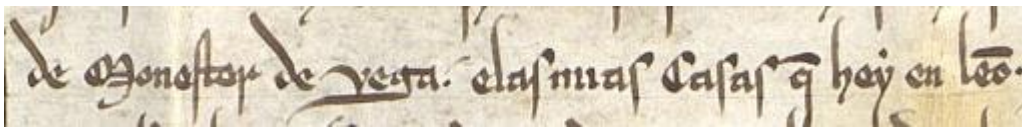 de Monester de vega. elas mias Casas q̄ hey en leō.